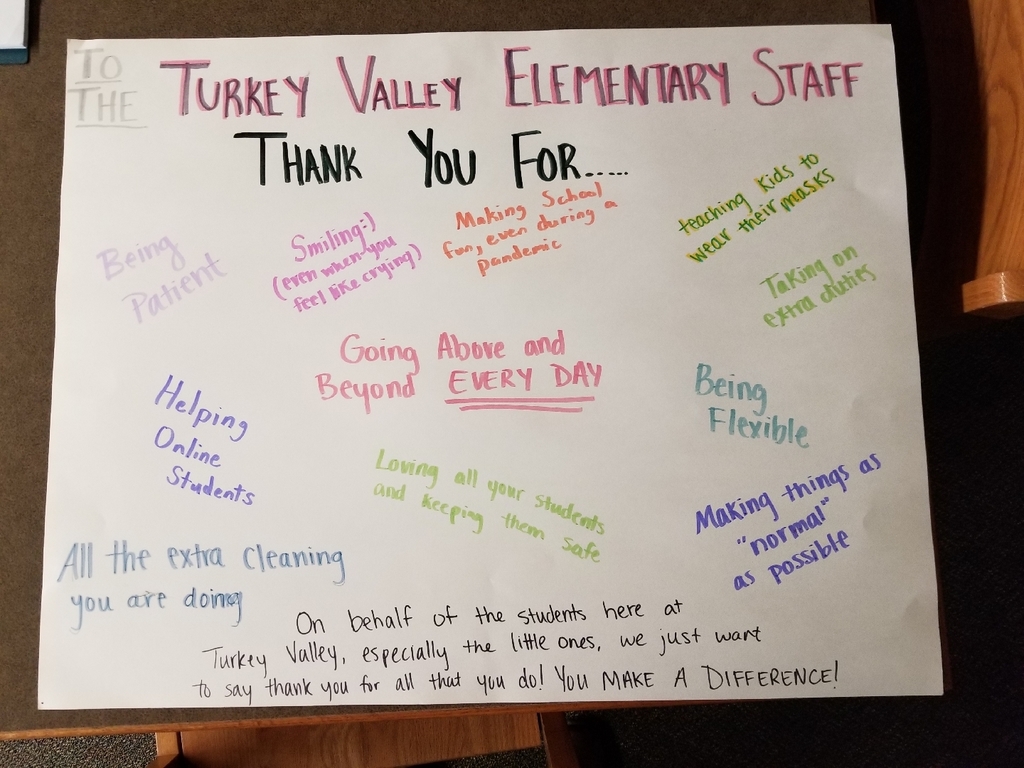 TO
THE
TURKEY VALLEY ELEMENTARY STAFF
THANK YOU FOR.....
Being
Patient
Smiling:)
(even when you
feel like crying)
Making School
fun, even during a
pandemic
teaching kids to
wear their masks
Taking on
extra duties
Going Above and
Beyond EVERY DAY
Being
Flexible
Helping
Online
Students
Loving all your students
and keeping them safe
Making things as
"normal"
as possible
All the extra cleaning
you are doing
On behalf of the students here at
Turkey Valley, especially the little ones, we just want
to say thank you for all that you do! YOU MAKE A DIFFERENCE!